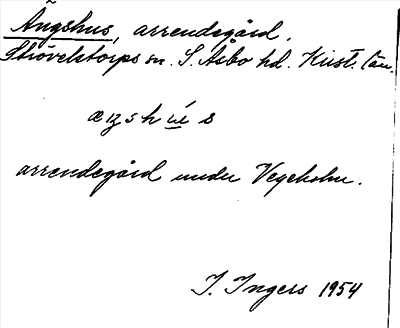 Ängshus, arrendegård.
Strövelstorps sn. S. Åsbo hd. Krist. län.
æŋshús
arrendegård under Vegeholm.
I. Ingers 1954